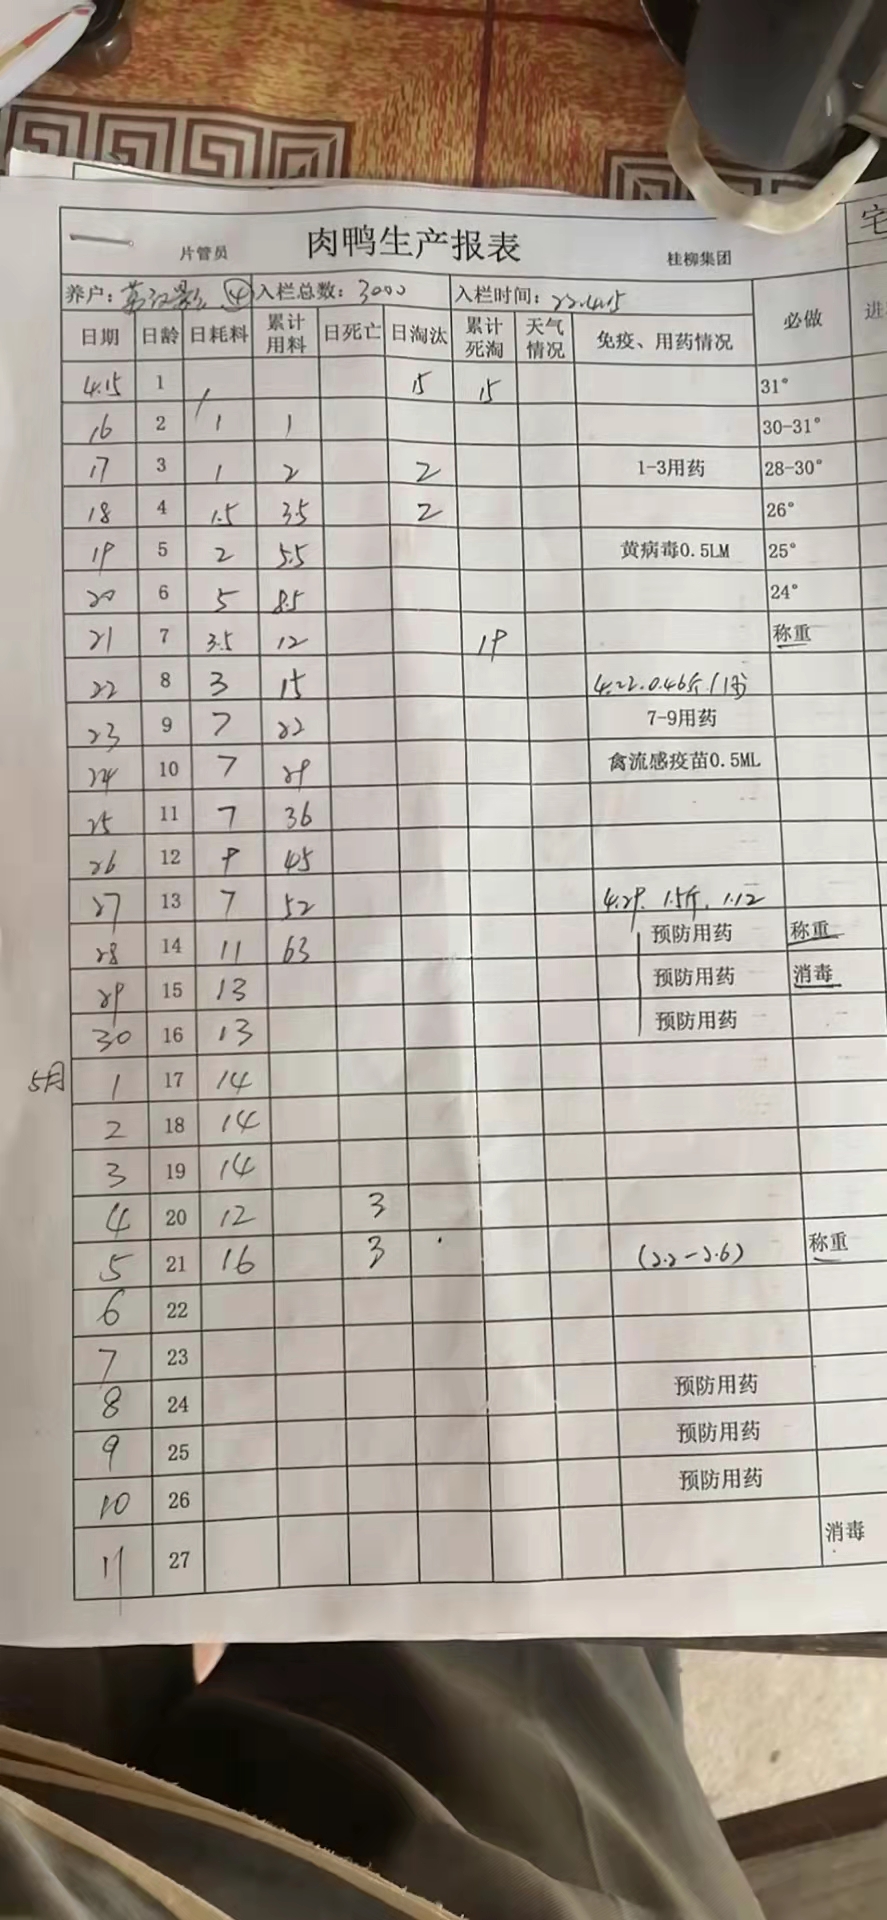 宅
肉鸭生产报表
片管员 桂柳集团
养户: ④ 入栏总数: 3000 入栏时间: 22.4.15 必做 进
日期 日龄 日耗料 累计用料 日死亡 日淘汰 累计死淘 天气情况 免疫、用药情况
4.15 1 15 15 31°
16 2 1 1 30-31°
17 3 1 2 2 1-3用药 28-30°
18 4 1.5 3.5 2 26°
19 5 2 5.5 黄病毒0.5LM 25°
20 6 5 8.5 24°
21 7 3.5 12 19 称重
22 8 3 15 4.22.0.46斤/1羽
23 9 7 22 7-9用药
24 10 7 29 禽流感疫苗0.5ML
25 11 7 36
26 12 9 45
27 13 7 52 4.29. 1.5斤. 1.12
28 14 11 63 预防用药 称重
29 15 13 预防用药 消毒
30 16 13 预防用药
5月 1 17 14
2 18 14
3 19 14
4 20 12 3
5 21 16 3 (2.2-2.6) 称重
6 22
7 23
8 24 预防用药
9 25 预防用药
10 26 预防用药
11 27 消毒